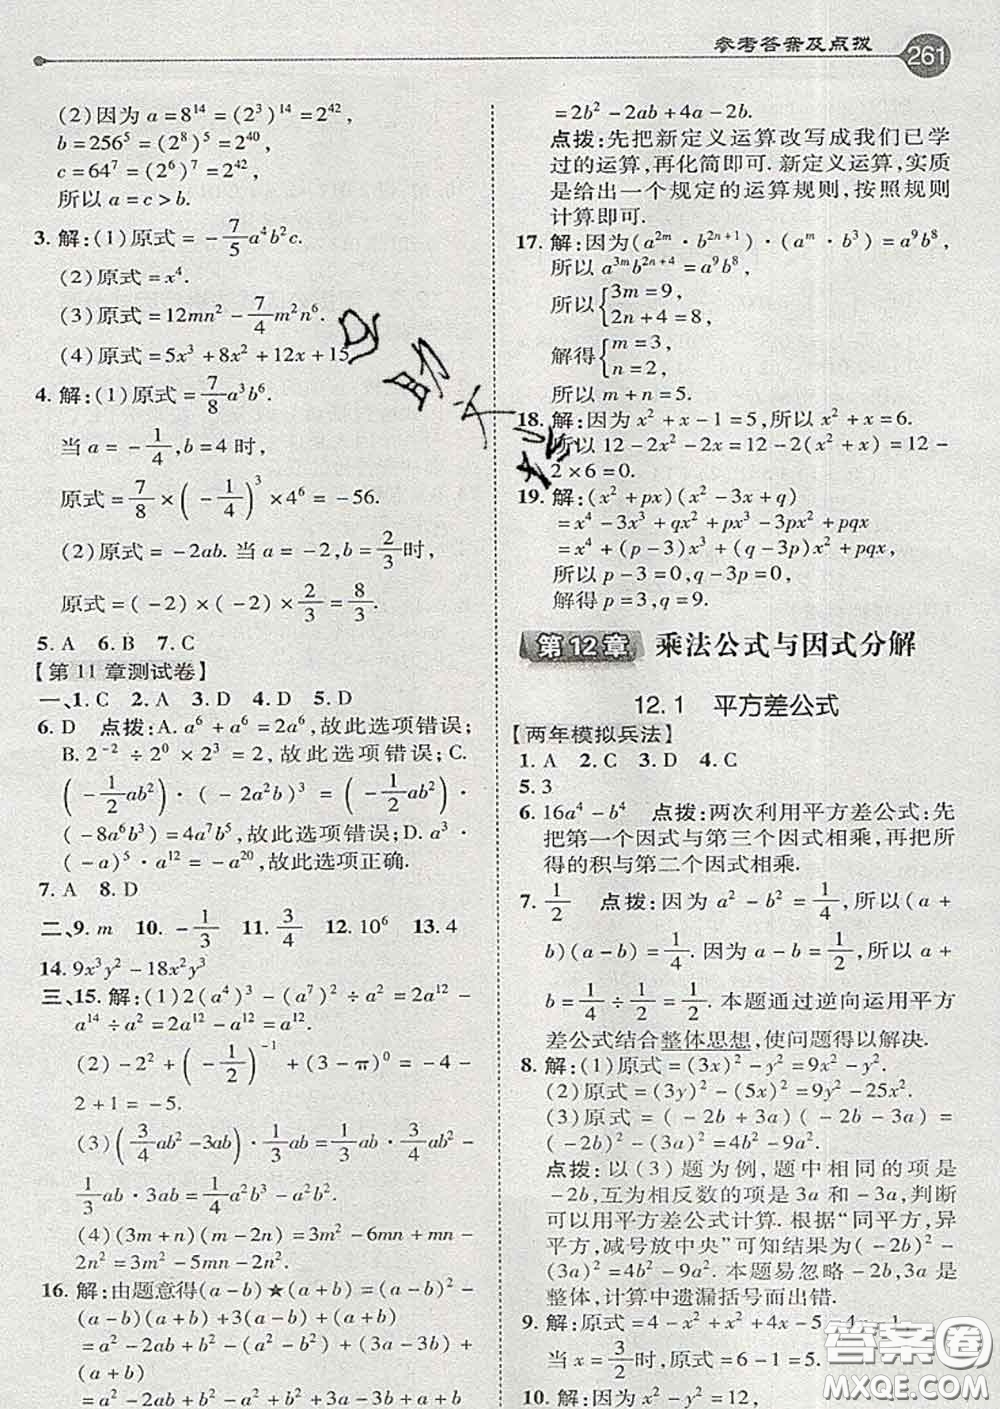 参考答案及点拨 261
(2)因为 a=8^14=(2^3)^14=2^42,
b=256^5=(2^8)^5=2^40,
c=64^7=(2^6)^7=2^42,
所以 a=c>b.
3. 解:(1)原式=-7/5a^4b^2c.
(2)原式=x^4.
(3)原式=12mn^2-7/4m^2n^6.
(4)原式=5x^3+8x^2+12x+15
4. 解:(1)原式=7/8a^3b^6.
当 a=-1/4,b=4 时,
原式=7/8×(-1/4)^3×4^6=-56.
(2)原式=-2ab. 当 a=-2,b=2/3时,
原式=(-2)×(-2)×2/3=8/3.
5. A 6. B 7. C
【第11章测试卷】
一、1. C 2. A 3. D 4. D 5. C
6. D 点拨:A. a^6+a^6=2a^6,故此选项错误;
B. 2^-2÷2^0×2^3=2,故此选项错误;C.
(-1/2ab^2)·(-2a^2b)^3=(-1/2ab^2)·
(-8a^6b^3)=4a^7b^5,故此选项错误;D. a^3·
(-a)^5·a^12=-a^20,故此选项正确.
7. A 8. D
二、9. m 10. -1/3 11. 3/4 12. 10^6 13. 4
14. 9x^3y^2-18x^2y^3
三、15. 解:(1)2(a^4)^3-(a^7)^2÷a^2=2a^12-
a^14÷a^2=2a^12-a^12=a^12.
(2)-2^2+(-1/2)^-1+(3-π)^0=-4-
2+1=-5.
(3)(3/4ab^2-3ab)·1/3ab=3/4ab^2·1/3ab-
1/3ab·3ab=1/4a^2b^3-a^2b^2.
(4)(3m+n)(m-2n)=3m^2-6mn+mn-
2n^2=3m^2-5mn-2n^2.
16. 解:由题意得(a-b)★(a+b)=(a-b)^2-
(a-b)(a+b)+3(a-b)+(a+b)
=a^2-2ab+b^2-(a^2-b^2)+3(a-b)+
(a+b)
=a^2-2ab+b^2-a^2+b^2+3a-3b+a+b
=2b^2-2ab+4a-2b.
点拨:先把新定义运算改写成我们已学
过的运算,再化简即可. 新定义运算,实质
是给出一个规定的运算规则,按照规则
计算即可.
17. 解:因为(a^2m·b^2n+1)·(a^m·b^3)=a^9b^8,
所以 a^3mb^2n+4=a^9b^8,
所以{3m=9,
2n+4=8,
解得{m=3,
n=2,
所以 m+n=5.
18. 解:因为 x^2+x-1=5,所以 x^2+x=6.
所以 12-2x^2-2x=12-2(x^2+x)=12-
2×6=0.
19. 解:(x^2+px)(x^2-3x+q)
=x^4-3x^3+qx^2+px^3-3px^2+pqx
=x^4+(p-3)x^3+(q-3p)x^2+pqx,
所以 p-3=0,q-3p=0,
解得 p=3,q=9.
第12章 乘法公式与因式分解
12.1 平方差公式
【两年模拟兵法】
1. A 2. C 3. D 4. C
5. 3
6. 16a^4-b^4 点拨:两次利用平方差公式:先
把第一个因式与第三个因式相乘,再把所
得的积与第二个因式相乘.
7. 1/2 点拨:因为 a^2-b^2=1/4,所以(a+
b)(a-b)=1/4. 因为 a-b=1/2,所以 a+
b=1/4÷1/2=1/2. 本题通过逆向运用平方
差公式结合整体思想,使问题得以解决.
8. 解:(1)原式=(3x)^2-y^2=9x^2-y^2.
(2)原式=(3y)^2-(5x)^2=9y^2-25x^2.
(3)原式=(-2b+3a)(-2b-3a)=
(-2b)^2-(3a)^2=4b^2-9a^2.
点拨:以(3)题为例,题中相同的项是
-2b,互为相反数的项是 3a 和-3a,判断
可以用平方差公式计算. 根据“同平方,异
平方,减号放中央”可知结果为(-2b)^2-
(3a)^2=4b^2-9a^2. 本题易忽略-2b,3a是
整体,计算中遗漏括号而出错.
9. 解:原式=4-x^2+x^2+4x-5-4x-1
当 x=3/2时,原式=6-1=5.
10. 解:因为 x^2-y^2=12,
答案圈
MXQE.COM